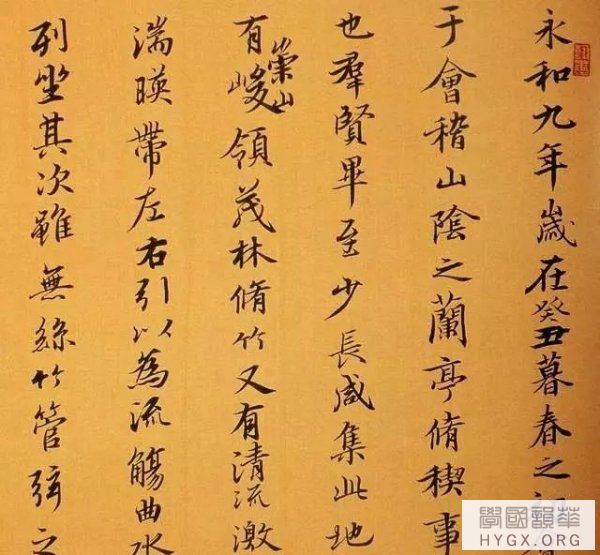 永和九年歲在癸丑暮春之初
于會稽山陰之蘭亭脩稧事
也羣賢畢至少長咸集此地
有崇山峻領茂林脩竹又有清流激
湍暎帶左右引以為流觴曲水
列坐其次雖無絲竹管弦之
學國韻華
HYGX.ORG